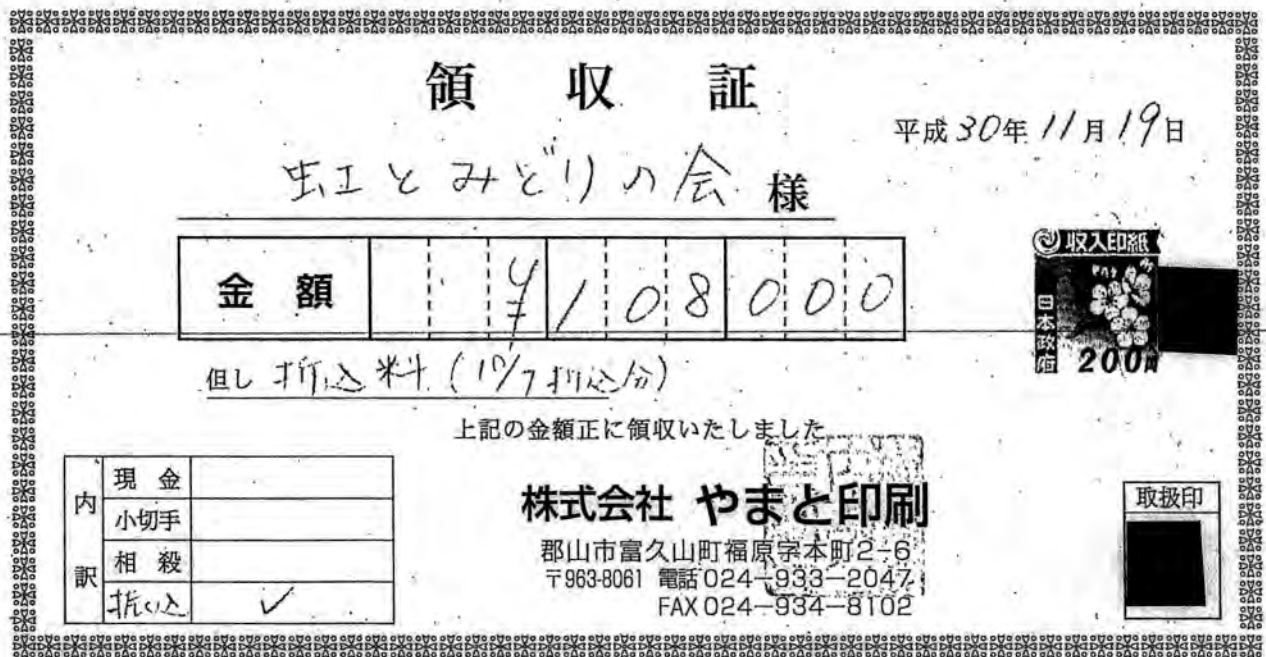 領収証
平成30年11月19日
虹とみどりの会 様
金額 ¥108000
但し 折込料 (10/7折込分)
収入印紙
日本政府
200円
上記の金額正に領収いたしました
内訳
現金
小切手
相殺
✓
株式会社 やまと印刷
郡山市富久山町福原字本町2-6
〒963-8061 電話024-933-2047
FAX 024-934-8102
取扱印